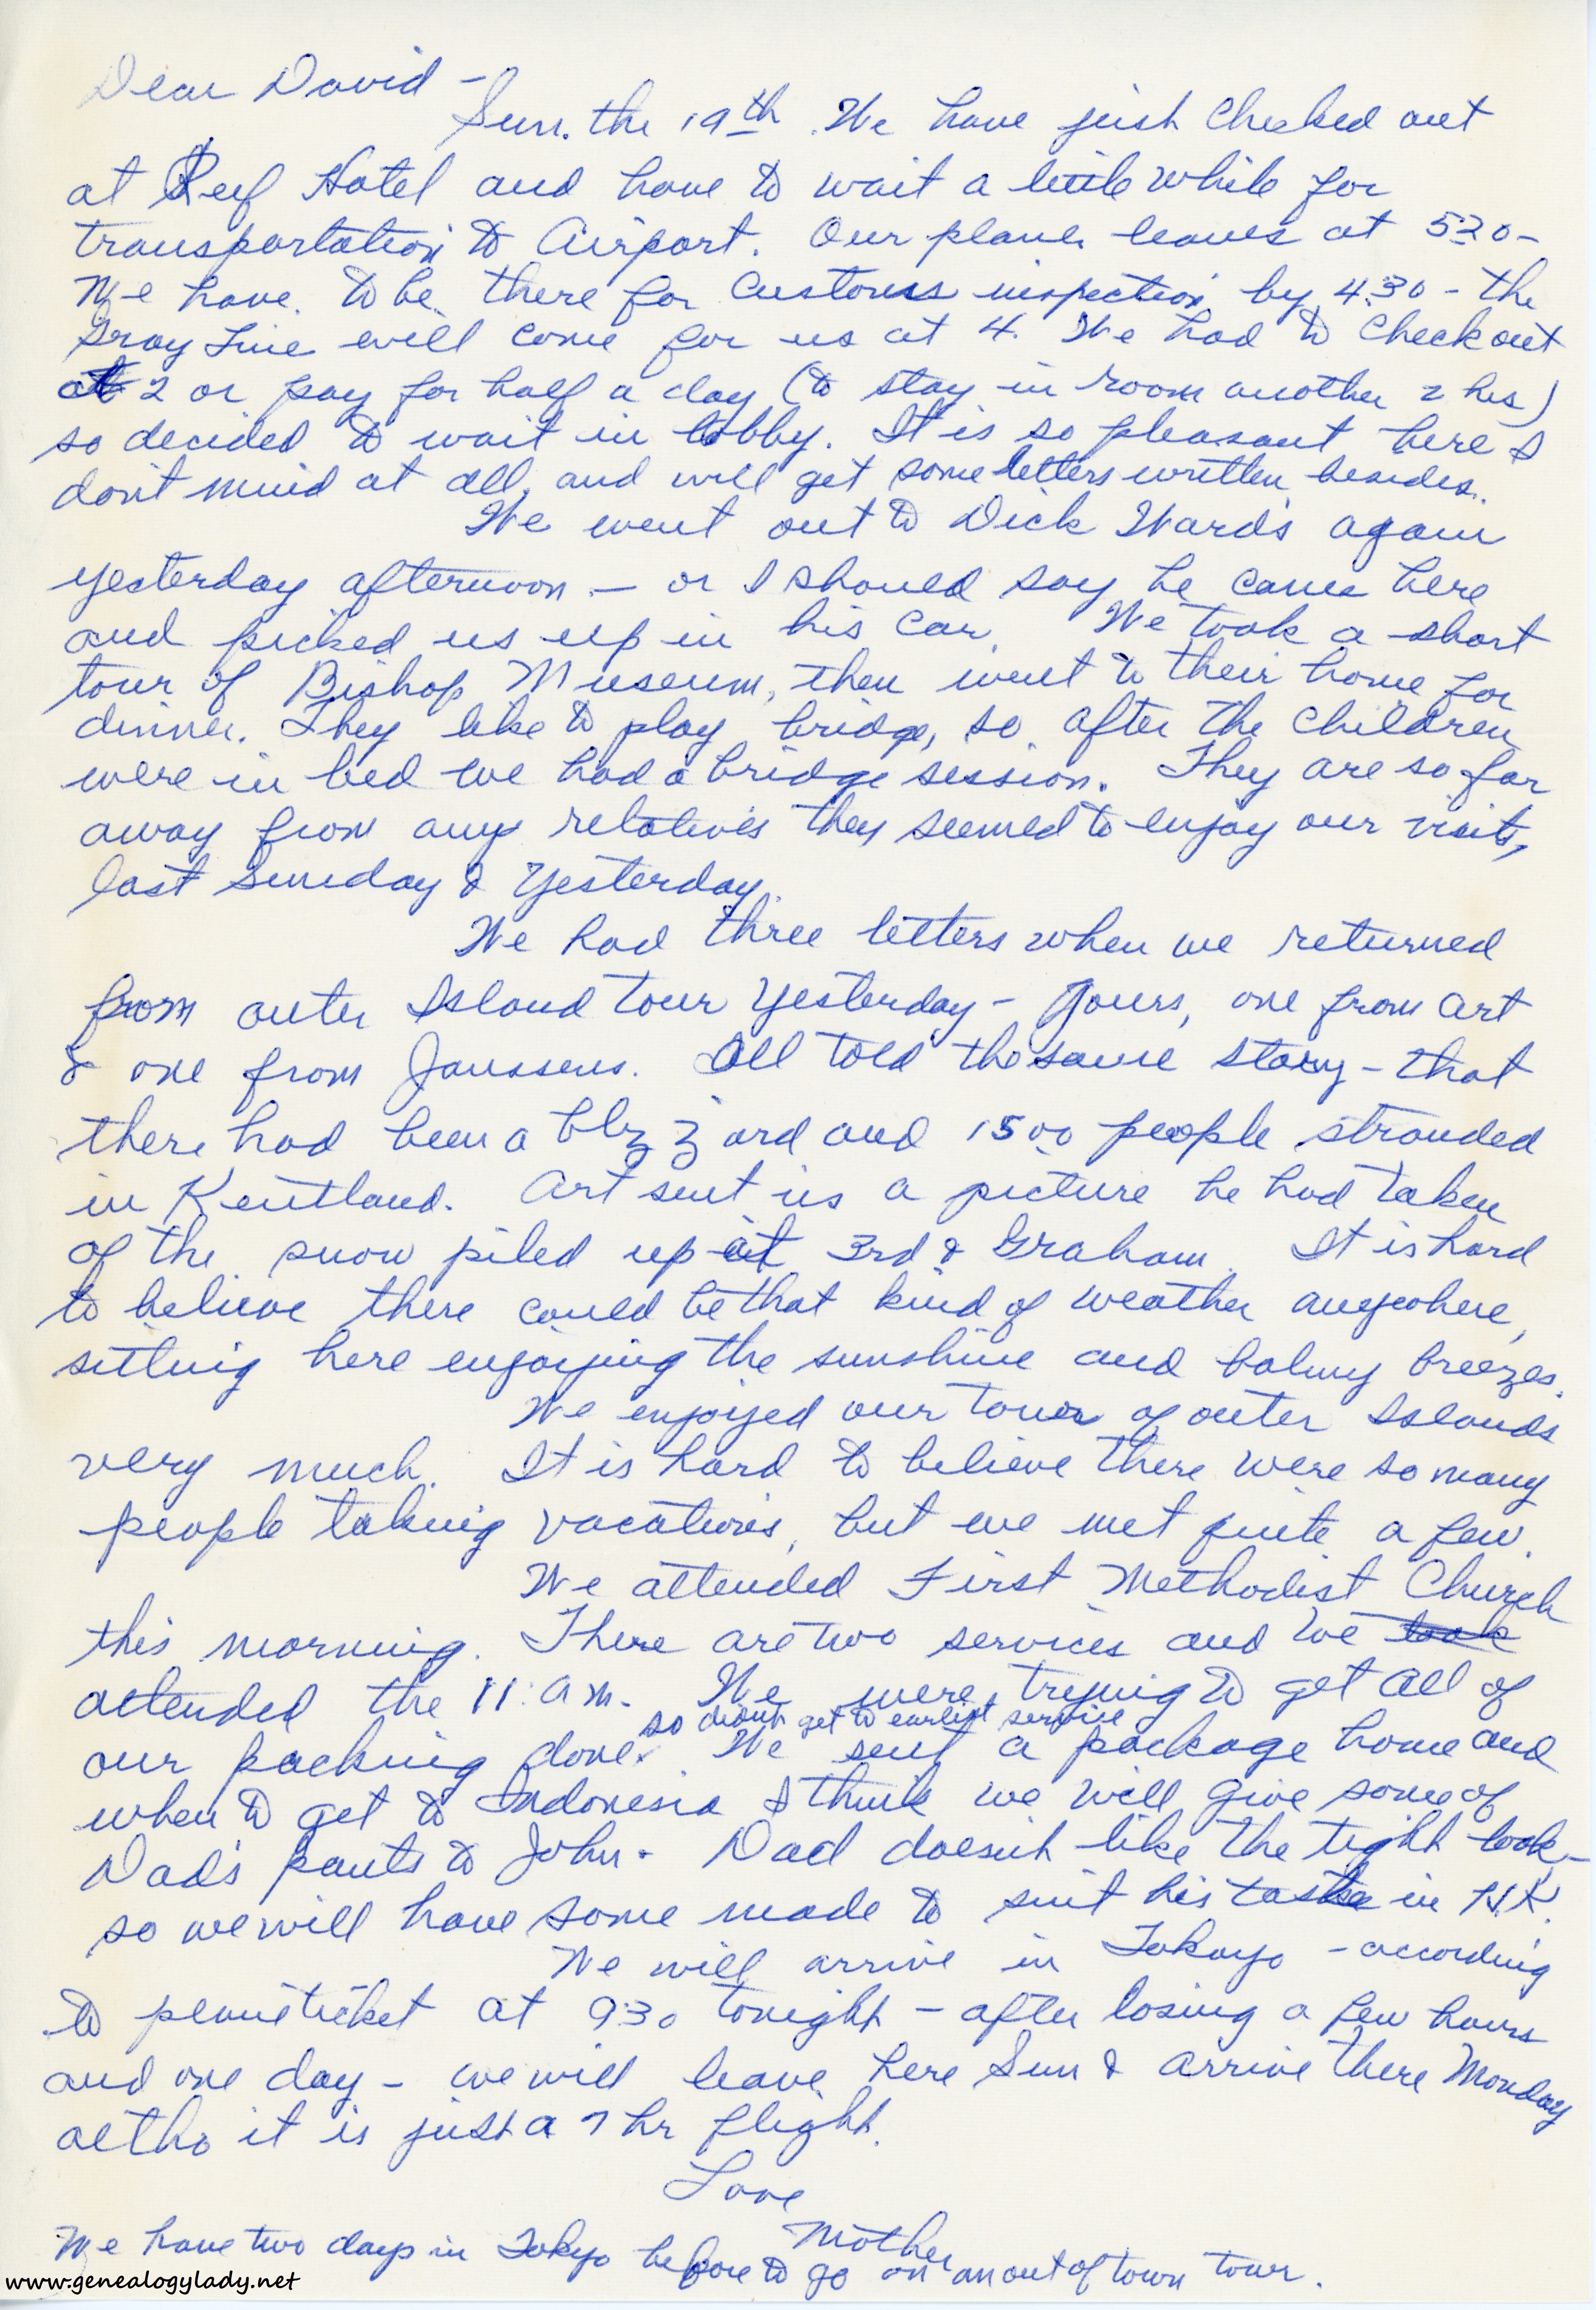 Dear David -
Sun. the 19th. We have just checked out
at Reef Hotel and have to wait a little while for
transportation to Airport. Our plane leaves at 530-
We have to be there for customs inspection by 4:30 - the
Gray Line will come for us at 4. We had to check out
at 2 or pay for half a day (to stay in room another 2 hrs)
so decided to wait in lobby. It is so pleasant here I
don't mind at all, and will get some letters written besides.
We went out to Dick Ward's again
yesterday afternoon - or I should say he came here
and picked us up in his car. We took a short
tour of Bishop Museum, then went to their home for
dinner. They like to play bridge, so after the children
were in bed we had a bridge session. They are so far
away from any relatives they seemed to enjoy our visits,
last Sunday & Yesterday.
We had three letters when we returned
from outer Island tour Yesterday - Yours, one from Art
& one from Janssens. All told the same story - that
there had been a blizzard and 1500 people stranded
in Kentland. Art sent us a picture he had taken
of the snow piled up at 3rd & Graham. It is hard
to believe there could be that kind of weather anywhere,
sitting here enjoying the sunshine and balmy breezes.
We enjoyed our tour of outer Islands
very much. It is hard to believe there were so many
people taking vacations, but we met quite a few.
We attended First Methodist Church
this morning. There are two services and we took
attended the 11:a m. We were trying to get all of
so didn't get to earliest service
our packing done. We sent a package home and
when to get to Indonesia I think we will give some of
Dad's pants to John. Dad doesn't like the tight look -
so we will have some made to suit his taste in H.K.
We will arrive in Tokoyo - according
to plane ticket at 930 tonight - after losing a few hours
and one day - we will leave here Sun & arrive there Monday
altho it is just a 7 hr flight.
Love
Mother
We have two days in Tokyo before to go on an out of town tour.
www.genealogylady.net